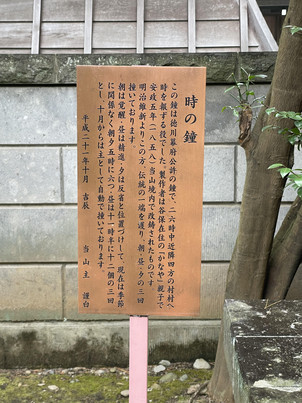 時の鐘
この鐘は徳川幕府公許の鐘で、二六時中近隣四方の村村へ
時を報ずる役でした。製作者は谷保在住の「かなや」親子で
安政五年(一八五八)当山境内で改鋳されたものです。
明治維新よりこの方、伝統の一端を護り、朝・昼・夕の三回
撞いております。
朝は覚醒・昼は精進・夕は反省と位置づけして、現在は季節
に関係なく、朝夕五時に六つ、昼は十一時半に十二個の三回
とし、十月からは主として自動で撞いております。
平成二十一年十月 吉辰 当山主 謹白